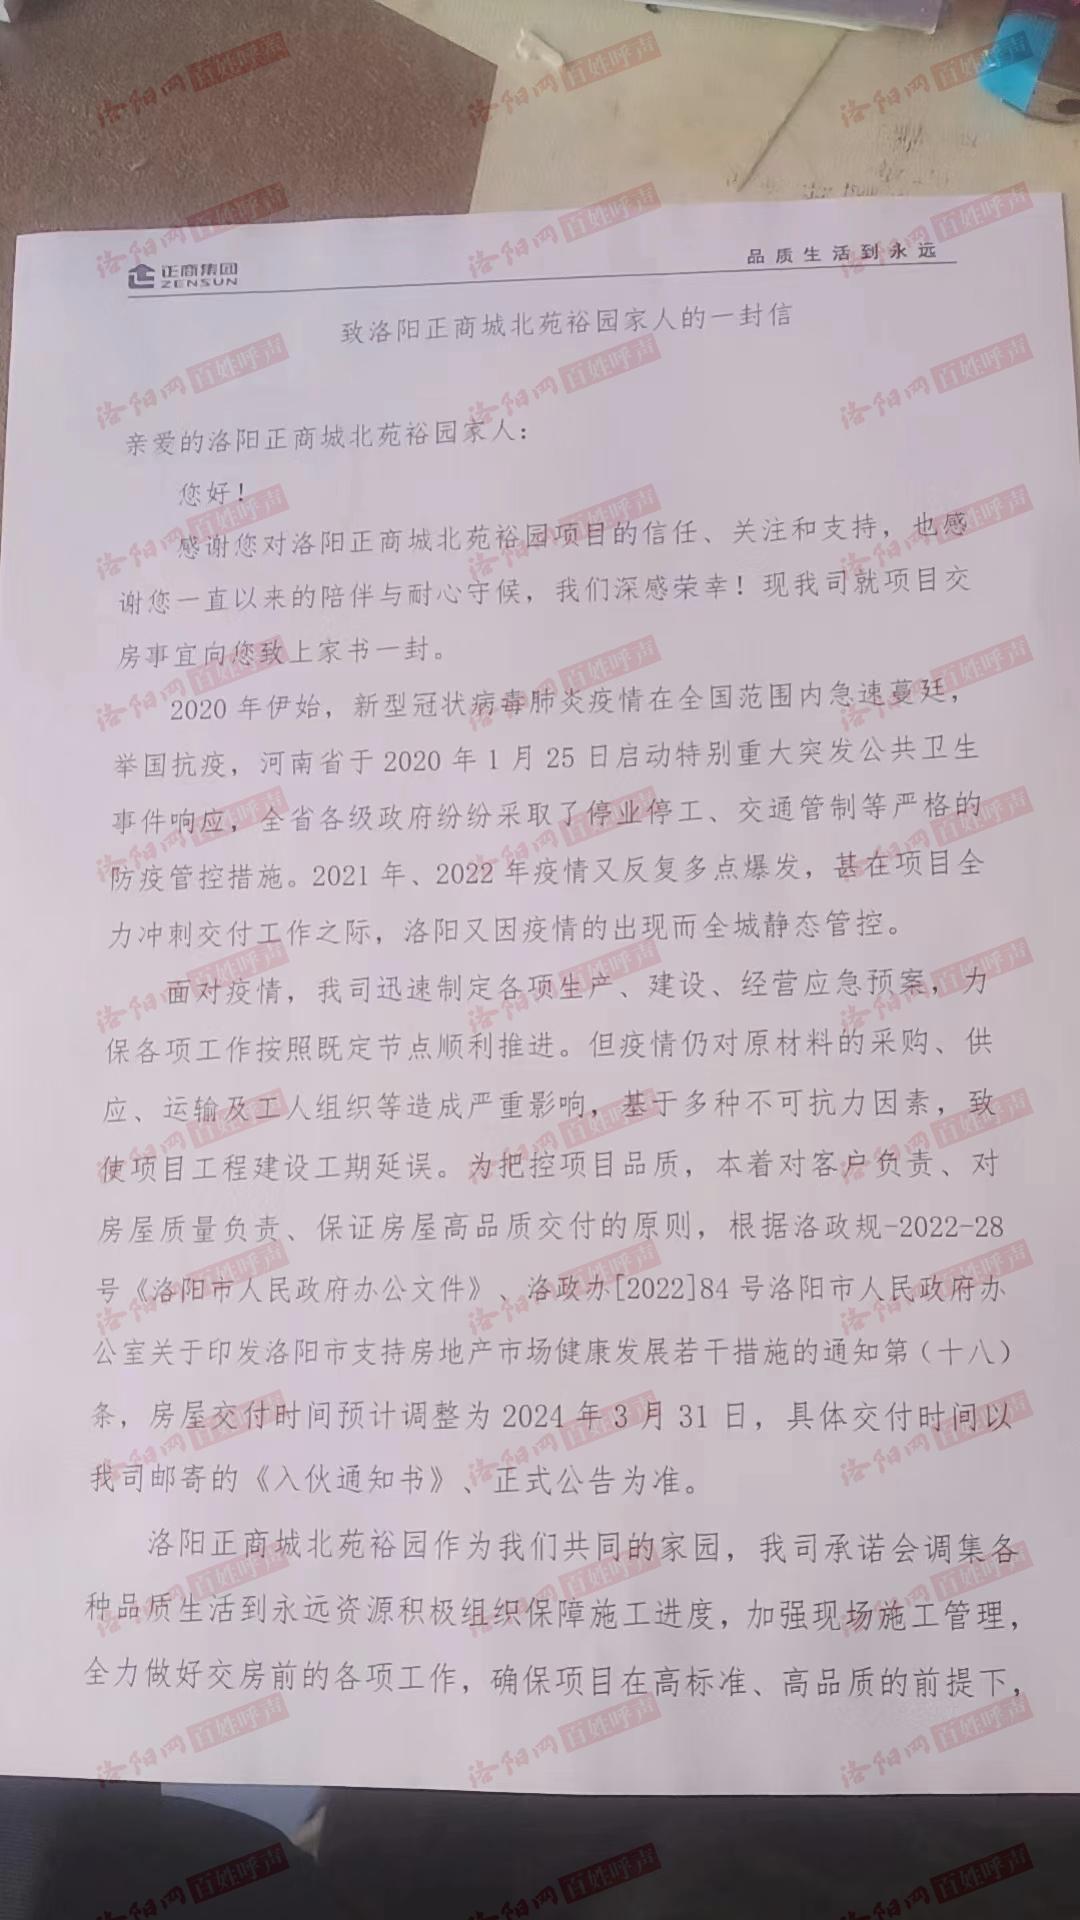 正商集团
ZENSUN
品质生活到永远
致洛阳正商城北苑裕园家人的一封信
亲爱的洛阳正商城北苑裕园家人：
您好！
感谢您对洛阳正商城北苑裕园项目的信任、关注和支持，也感
谢您一直以来的陪伴与耐心守候，我们深感荣幸！现我司就项目交
房事宜向您致上家书一封。
2020 年伊始，新型冠状病毒肺炎疫情在全国范围内急速蔓廷，
举国抗疫，河南省于 2020 年 1 月 25 日启动特别重大突发公共卫生
事件响应，全省各级政府纷纷采取了停业停工、交通管制等严格的
防疫管控措施。2021 年、2022 年疫情又反复多点爆发，甚在项目全
力冲刺交付工作之际，洛阳又因疫情的出现而全城静态管控。
面对疫情，我司迅速制定各项生产、建设、经营应急预案，力
保各项工作按照既定节点顺利推进。但疫情仍对原材料的采购、供
应、运输及工人组织等造成严重影响，基于多种不可抗力因素，致
使项目工程建设工期延误。为把控项目品质，本着对客户负责、对
房屋质量负责、保证房屋高品质交付的原则，根据洛政规-2022-28
号《洛阳市人民政府办公文件》、洛政办[2022]84 号洛阳市人民政府办
公室关于印发洛阳市支持房地产市场健康发展若干措施的通知第（十八）
条，房屋交付时间预计调整为 2024 年 3 月 31 日，具体交付时间以
我司邮寄的《入伙通知书》、正式公告为准。
洛阳正商城北苑裕园作为我们共同的家园，我司承诺会调集各
种品质生活到永远资源积极组织保障施工进度，加强现场施工管理，
全力做好交房前的各项工作，确保项目在高标准、高品质的前提下，
洛阳网 百姓呼声